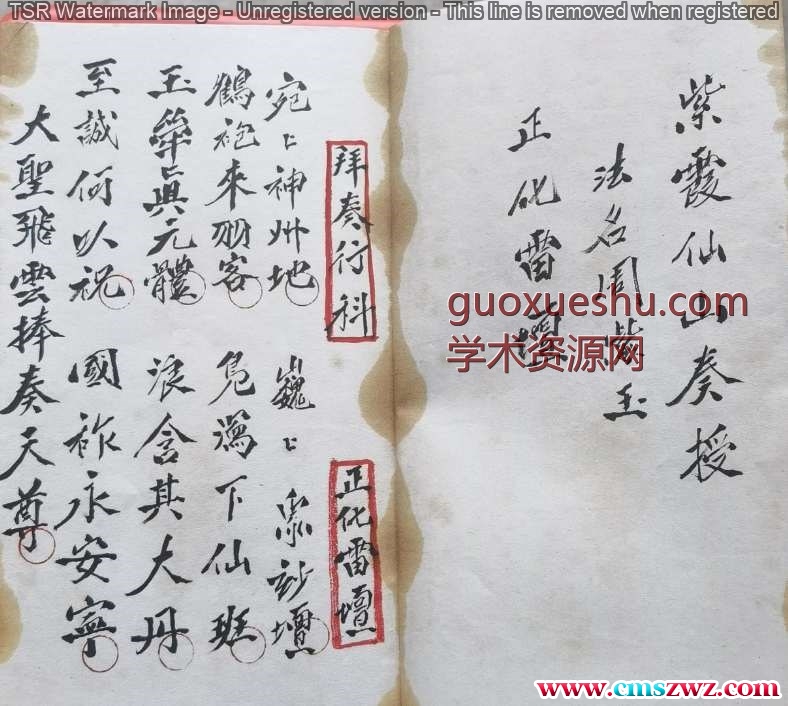 TSR Watermark Image - Unregistered version - This line is removed when registered
紫霞仙山奏授
法名周 玉
正化雷壇
guoxueshu.com
学术资源网
拜奏行科 正化雷壇
宛〻神州地 巍〻衆妙壇
鶴袍來羽客 凫舄下仙班
玉 真元體 浪含其大丹
至誠何以祝 國祚永安寧
大聖飛雲捧奏天尊
www.cmszwz.com